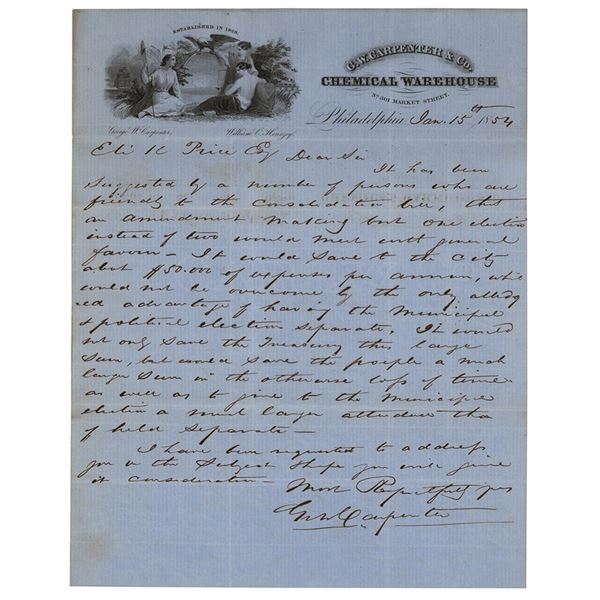 ESTABLISHED IN 1828.
G.W. CARPENTER & Co.
CHEMICAL WAREHOUSE
No. 301 MARKET STREET.
Philadelphia Jan. 15th 1854
George W. Carpenter, William C. Henszey.
Eli K Price Esq Dear Sir
It has been
suggested by a number of persons who are
friendly to the consolidation bill, that
an amendment making but one election
instead of two would meet with general
favour – It would save to the City
about $50.000 of expenses per annum, which
could not be overcome by the only alledg
ed advantage of having the Municipal
& political election separate. It would
not only save the Treasury this large
sum, but would save the people a much
larger sum in the otherwise loss of time
as well as to give to the Municipal
election a much larger attendance than
if held separate –
I have been requested to address
you on the subject & hope you will give
it consideration –
Most Respectfully yrs
Geo W Carpenter